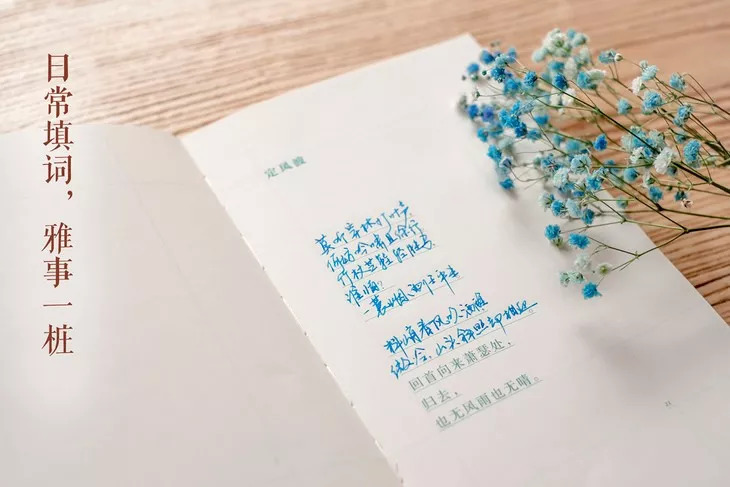 日常填词，雅事一桩
定风波
莫听穿林打叶声
何妨吟啸且徐行
竹杖芒鞋轻胜马
谁怕？
一蓑烟雨任平生
料峭春风吹酒醒
微冷，山头斜照却相迎
回首向来萧瑟处，
归去，
也无风雨也无晴。